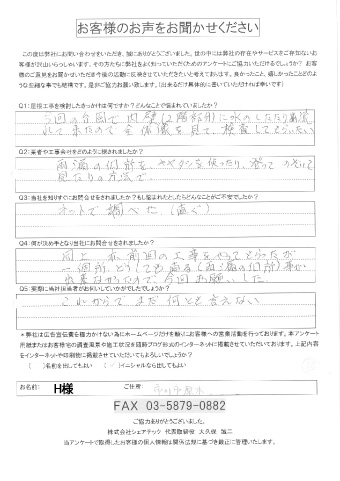 お客様のお声をお聞かせください
この度は弊社にお問い合わせをいただき、誠にありがとうございました。世の中には弊社の存在やサービスをご存知ないお
客様が沢山いらっしゃいます。その方たちに弊社をよく知っていただくためのアンケートにご協力いただけるでしょうか? お客
様のご意見をお聞かせいただき今後の活動に反映させていただきたいと考えております。良かったこと、嬉しかったことどのよ
うな些細な事でも結構です。是非ご協力お願い致します。(出来るだけ具体的に書いていただければ幸いです)
Q1:屋根工事を検討したきっかけは何ですか?どんなことで悩まれていましたか?
今回の台風で内壁(2階部分)に水のしたたり
れて来たので全体を見て、検査してもらいたい
Q2:業者や工事会社をどのように探されましたか?
雨漏の個所を
見たりの方法で
Q3:当社を知りすぐにお問合せをされましたか?もし悩まれたとしたらどんなことがご不安でしたか?
ネットで調べた(直ぐ)
Q4:何が決め手となり当社にお問合せをされましたか?
同上 前回の工事をやってもらったが
一個所どうしても (雨漏の個所)
出来なかったので、今回お願いした
Q5:実際に当社担当者がお伺いしていかがでしたでしょうか?
これからでまだ何とも言えない
*弊社は広告宣伝費を極力かけない為にホームページだけを頼りにお客様への営業活動を行っております。本アンケート
用紙またはお客様宅の調査風景や施工状況を随時ブログ形式のインターネットに掲載させていただいております。上記内容
をインターネットや印刷物に掲載させていただいてもよろしいでしょうか?
( )名前を出してもよい ( )イニシャルなら出してもよい
お名前: H様 ご住所:
FAX 03-5879-0882
ご協力ありがとうございました。
株式会社シェアテック 代表取締役 大久保 誠二
当アンケートで取得したお客様の個人情報は関係法規に基づき厳正に管理いたします。